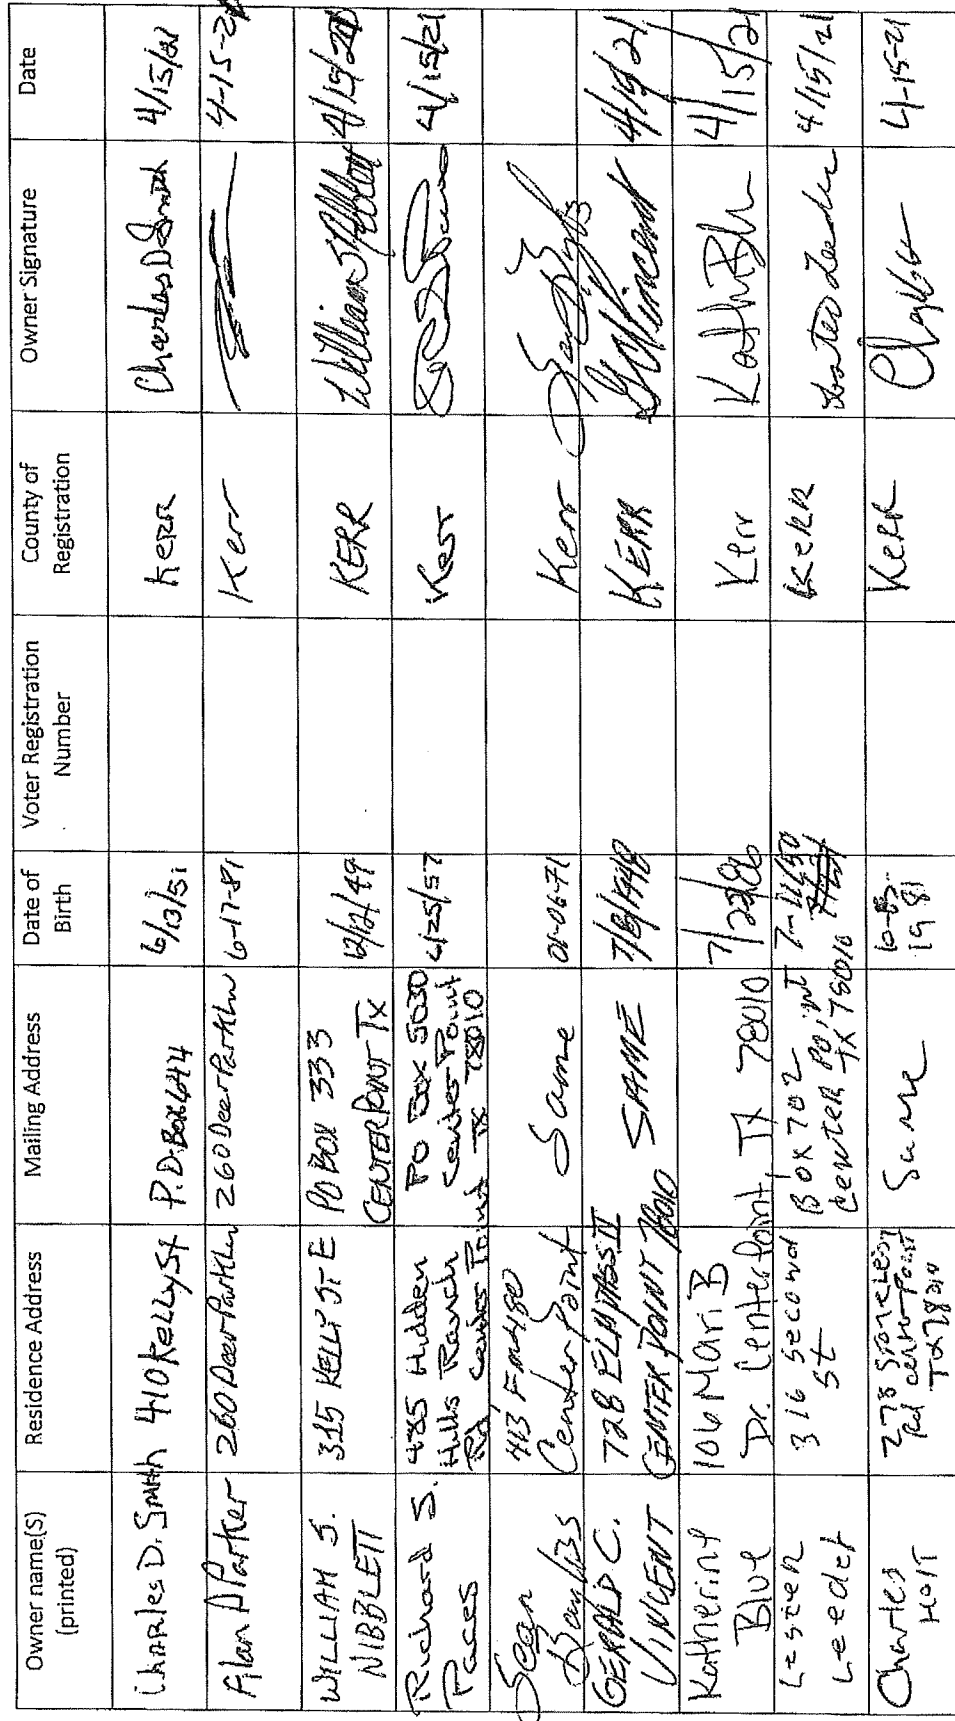 Owner name(S) (printed) Residence Address Mailing Address Date of Birth Voter Registration Number County of Registration Owner Signature Date
Charles D. Smith 410 Kelly St P.O. Box 644 6/13/51 Kerr Charles D Smith 4/15/21
Alan D Parker 260 Deer Park Ln 260 Deer Park Ln 6-17-81 Kerr 4-15-21
WILLIAM J. NIBBLETT 315 KELLY ST E PO BOX 333 CENTER POINT TX 12/12/49 KERR William J Nibblett 4/15/21
Richard S. Paces 485 Hidden Hills Ranch Rd Center Point PO Box 5030 Center Point TX 78010 6/25/57 Kerr 4/15/21
Sean 413 Fm 480 Center Point Same 01-06-71 Kerr
GERALD C. VINCENT 728 ELM PASS II CENTER POINT 78010 SAME 7/8/1948 KERR G Vincent 4/15/21
Katherine Blue 106 Mari B Dr. Center Point, TX 78010 7/22/86 Kerr Kath Blu 4/15/21
Lester Leeder 316 Second St Box 702 Center Point TX 78010 7-11/50 Kerr Lester Leeder 4/15/21
Charles Holt 278 Stoneleigh Rd Center Point TX 78010 Same 1981 Kerr 4-15-21